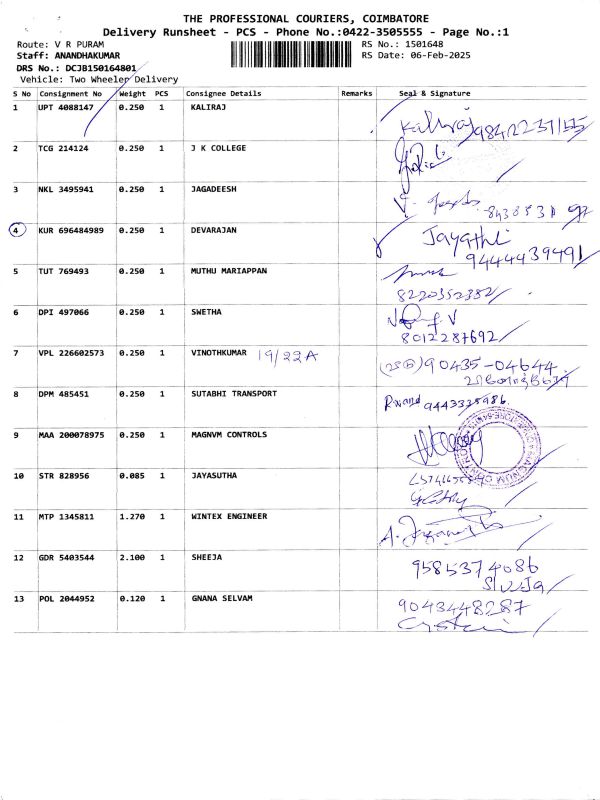 THE PROFESSIONAL COURIERS, COIMBATORE
Delivery Runsheet - PCS - Phone No.:0422-3505555 - Page No.:1
Route: V R PURAM RS No.: 1501648
Staff: ANANDHAKUMAR RS Date: 06-Feb-2025
DRS No.: DCJB150164801
Vehicle: Two Wheeler Delivery
S No Consignment No Weight PCS Consignee Details Remarks Seal & Signature
1 UPT 4088147 0.250 1 KALIRAJ
Kaliraj
2 TCG 214124 0.250 1 J K COLLEGE
3 NKL 3495941 0.250 1 JAGADEESH
4 KUR 696484989 0.250 1 DEVARAJAN
Jayathi
9444439491
5 TUT 769493 0.250 1 MUTHU MARIAPPAN
8220352382
6 DPI 497066 0.250 1 SWETHA
8012287692
7 VPL 226602573 0.250 1 VINOTHKUMAR 19/22A
90435-04644
8 DPM 485451 0.250 1 SUTABHI TRANSPORT
9443325986
9 MAA 200078975 0.250 1 MAGNVM CONTROLS
10 STR 828956 0.085 1 JAYASUTHA
11 MTP 1345811 1.270 1 WINTEX ENGINEER
12 GDR 5403544 2.100 1 SHEEJA
9585374086
13 POL 2044952 0.120 1 GNANA SELVAM
9043448287